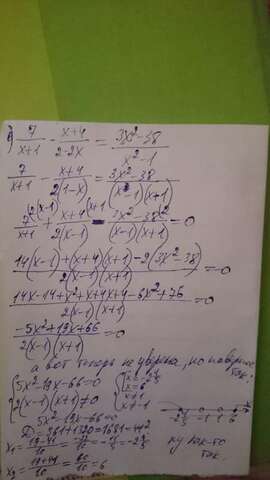 в) 7/(x+1) - (x+4)/(2-2x) = (3x²-38)/(x²-1)
7/(x+1) - (x+4)/(2(1-x)) = (3x²-38)/((x-1)(x+1))
7^(2(x-1)/(x+1) + (x+4)^(x+1/(2(x-1)) - (3x²-38)^(2/((x-1)(x+1)) = 0
(14(x-1)+(x+4)(x+1)-2(3x²-38))/(2(x-1)(x+1)) = 0
(14x-14+x²+x+4x+4-6x²+76)/(2(x-1)(x+1)) = 0
(-5x²+19x+66)/(2(x-1)(x+1)) = 0
а вот теперь не уверена, но наверное так:
{5x²-19x-66=0
{2(x-1)(x+1)≠0
x=6
x≠1
x≠-1
5x²-19x-66=0
-1 1 6 x
Д=361+1320=1681=41²
ну как-то так.
x₂ = (19+41)/10 = 60/10 = 6